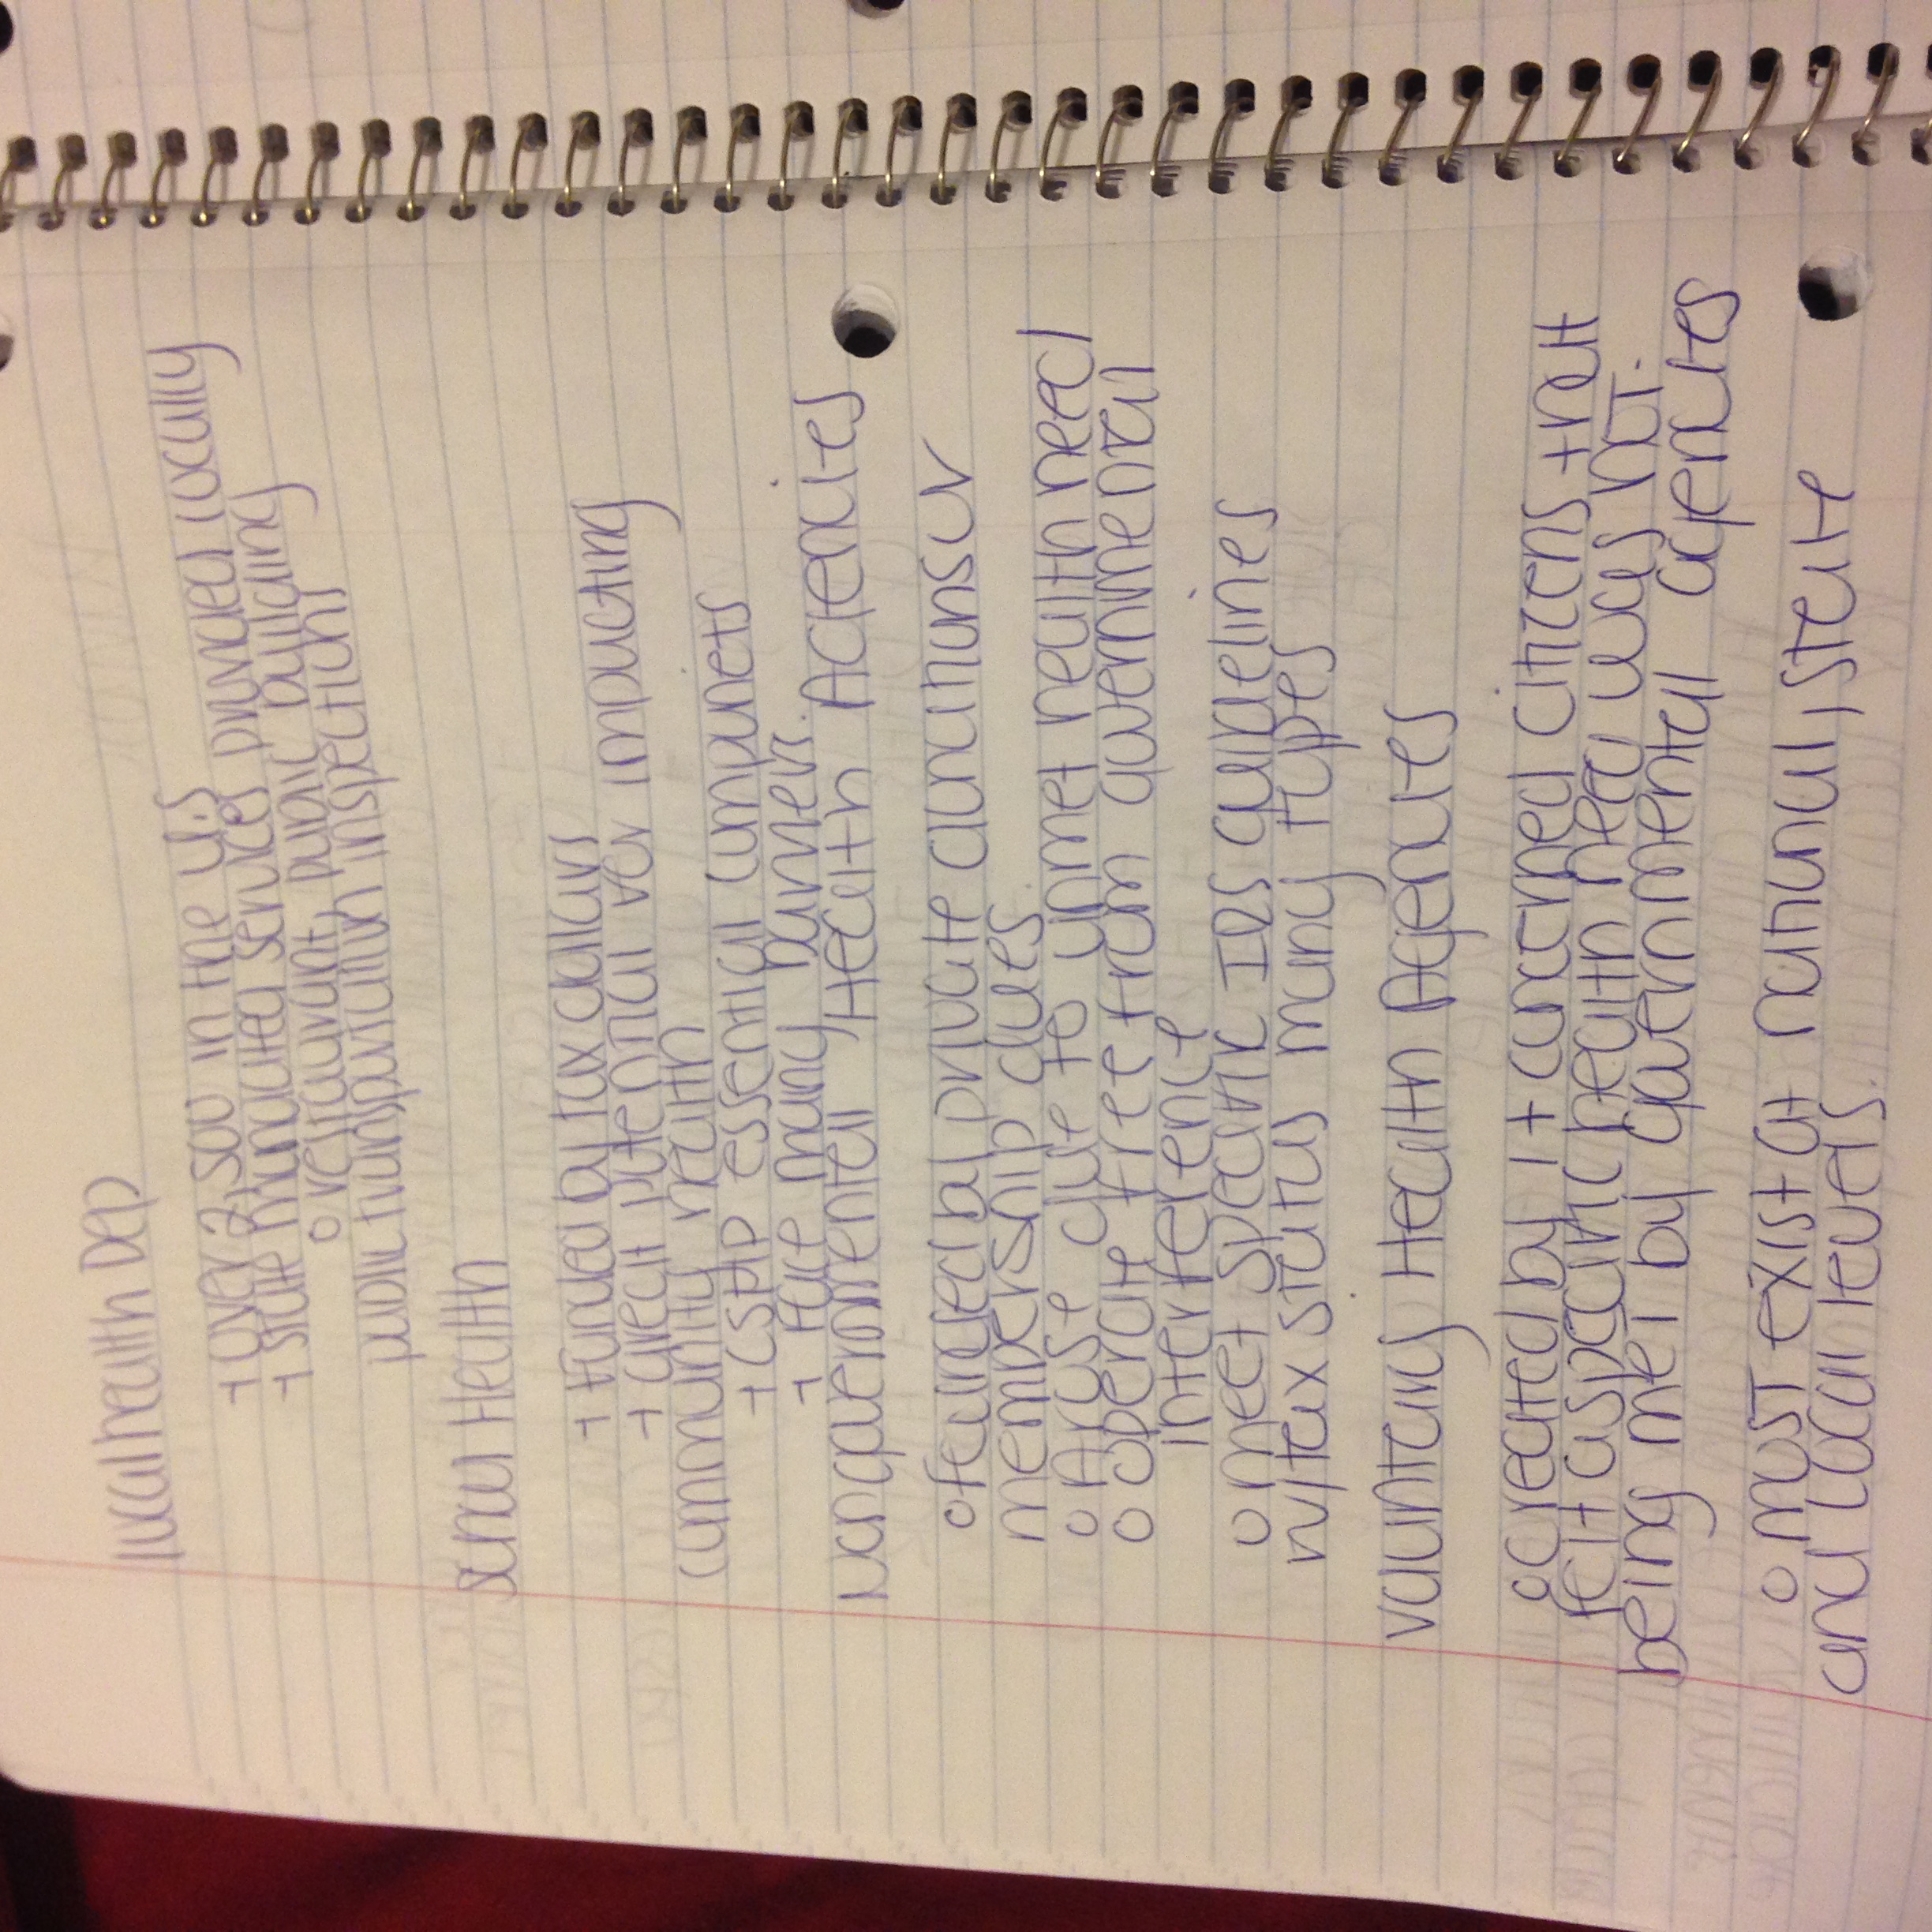 local health Dep
+ over 2,500 in the U.S
+ state mandated services provided locally
o restaurant public building
public transportation inspections
School Health
+ Funded by tax dollars
+ great potential for impacting
community health
+ CSHP essential components
+ Face many barriers.
Nongovernmental Health Agencies
o feunded by private donations or
membership dues
o Arose due to unmet health need
o operate free from governmental
interference
o meet specific IRS guidelines
w/tax status many types
Voluntary Health Agencies
o Created by 1+ concerned citizens that
felt a specific health need was not
being met by governmental agencies
o must exist at national, state
and local levels.